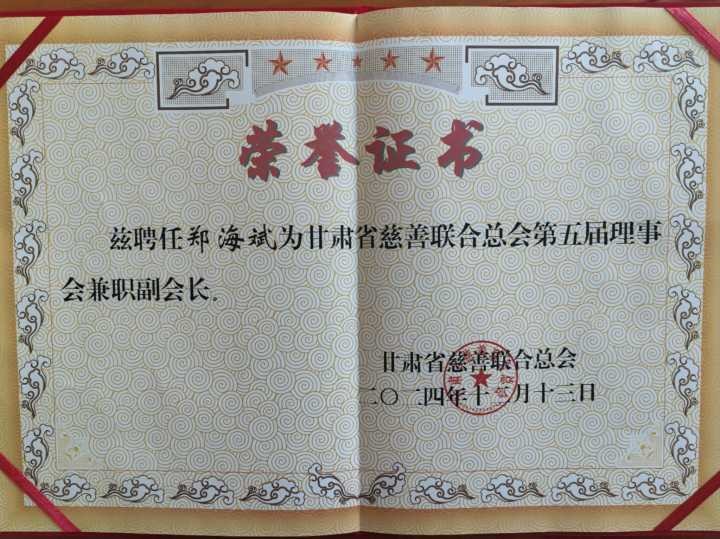 荣誉证书
兹聘任郑海斌为甘肃省慈善联合总会第五届理事
会兼职副会长.
甘肃省慈善联合总会
二〇二四年十二月十三日